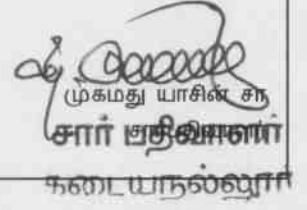 முகமது யாசின் சா
சார் பதிவாளர்
கடையநல்லூர்